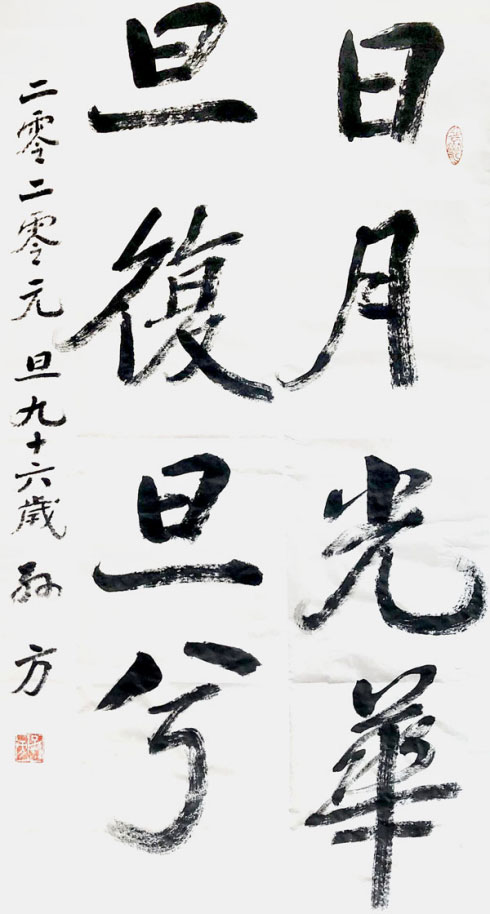 日月光華
旦復旦兮
二零二零元旦九十六歲孫方